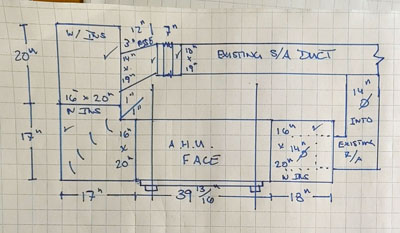 W/ INS
12"
7"
3" RISE
14"
x
19"
EXISTING S/A DUCT
20"
16" x 20"
1"
1"
N INS
16"
x
20"
17"
A.H.U.
FACE
16"
x
20"
14"
Ø
N INS
14"
Ø
INTO
EXISTING
R/A
17"
39 13/16"
18"